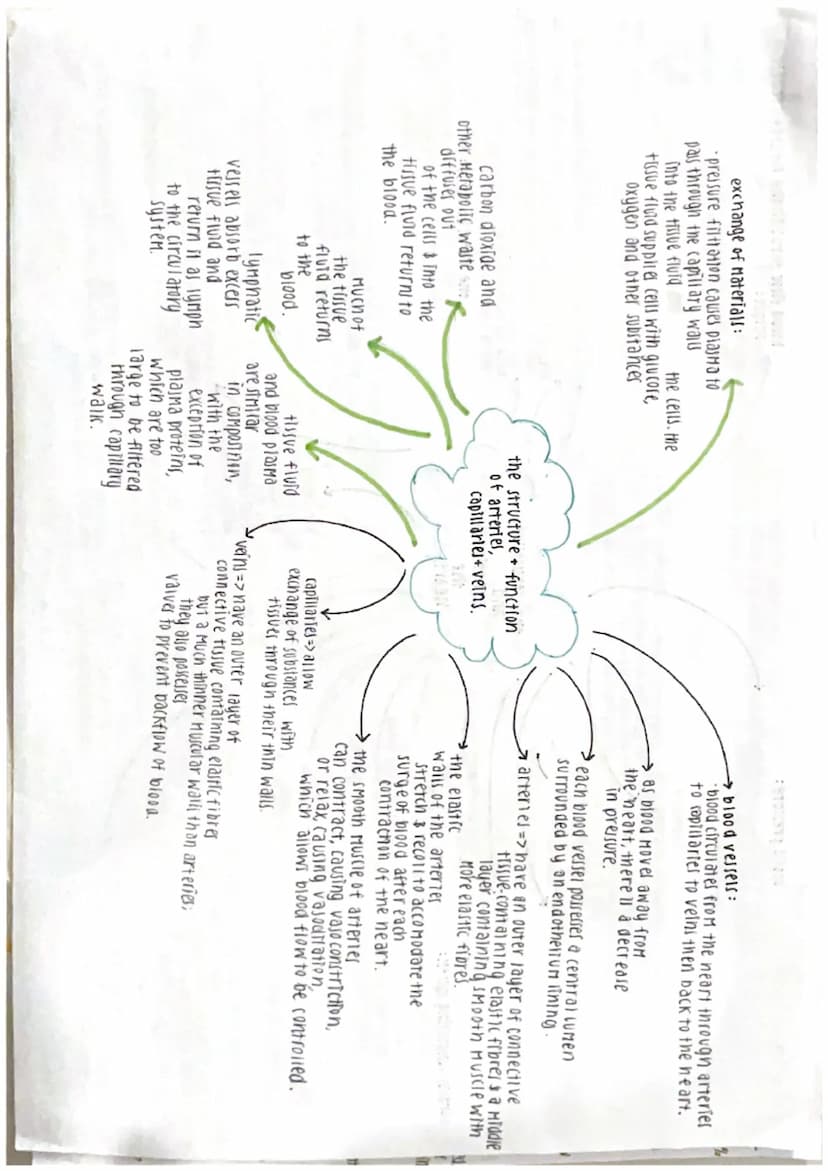 the structure + function
of arteries,
capillaries + veins.
blood vessels:
·blood circulates from the heart through arteries
to capillaries to veins then back to the heart.
as blood moves away from
the heart, there is a decrease
in pressure.
each blood vessel possesses a central lumen
surrounded by an endothelium lining.
arteries => have an outer layer of connective
tissue containing elastic fibres & a middle
layer containing smooth muscle with
more elastic fibres.
the elastic
walls of the arteries
stretch & recoil to accomodate the
surge of blood after each
contraction of the heart.
the smooth muscle of arteries
can contract, causing vasoconstriction,
or relax, causing vasodilation,
which allows blood flow to be controlled.
capillaries => allow
exchange of substances with
tissues through their thin walls.
veins => have an outer layer of
connective tissue containing elastic fibres
but a much thinner muscular wall than arteries;
they also possess
valves to prevent backflow of blood.
exchange of materials:
·pressure filtration causes plasma to
pass through the capillary walls
into the tissue fluid the cells. the
tissue fluid supplies cells with glucose,
oxygen and other substances
carbon dioxide and
other metabolic waste
diffuses out
of the cells & into the
tissue fluid returns to
the blood.
much of
the tissue
fluid returns
to the
blood.
lymphatic
vessels absorb excess
tissue fluid and
return it as lymph
to the circulatory
system.
tissue fluid
and blood plasma
are similar
in composition,
with the
exception of
plasma proteins,
which are too
large to be filtered
through capillary
walls.